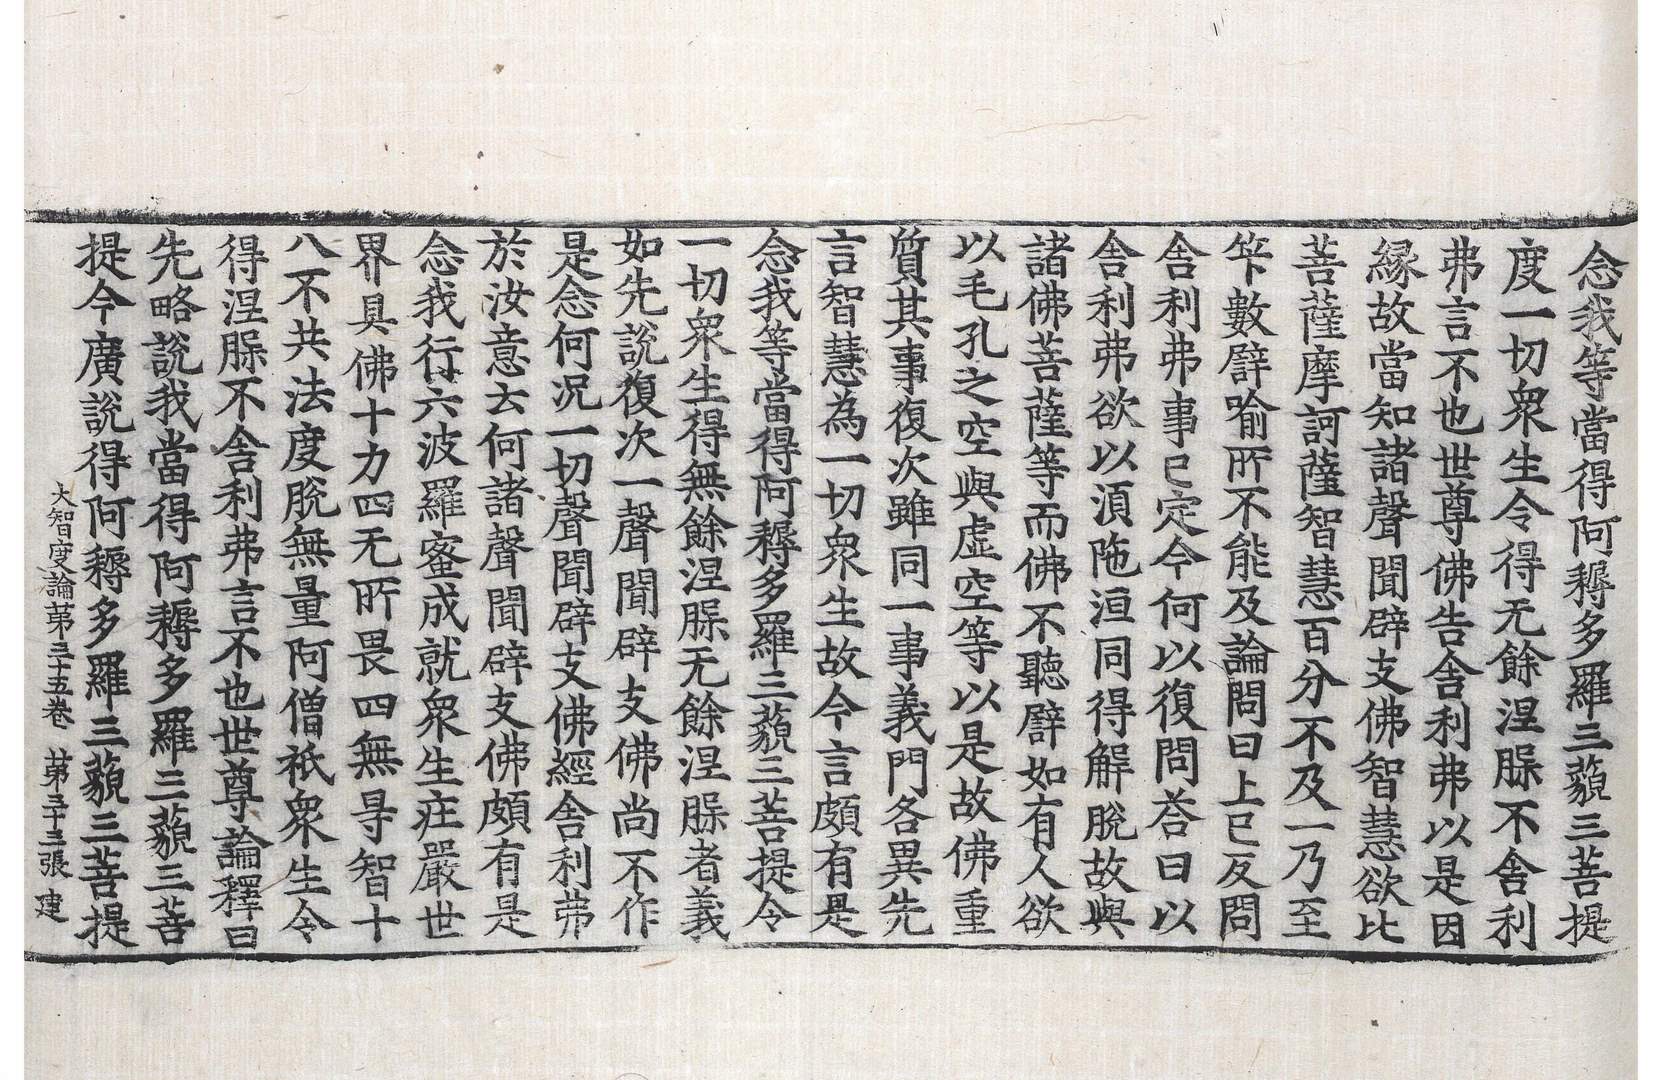 念我等當得阿耨多羅三藐三菩提
度一切衆生令得无餘涅槃不舍利
弗言不也世尊佛告舍利弗以是因
縁故當知諸聲聞辟支佛智慧欲比
菩薩摩訶薩智慧百分不及一乃至
筭數譬喻所不能及論問曰上已反問
舍利弗事已定今何以復問荅曰以
舍利弗欲以湏陁洹同得解脫故與
諸佛菩薩等而佛不聽譬如有人欲
以毛孔之空與虛空等以是故佛重
質其事復次雖同一事義門各異先
言智慧為一切衆生故今言頗有是
念我等當得阿耨多羅三藐三菩提令
一切衆生得無餘涅槃无餘涅槃者義
如先說復次一聲聞辟支佛尚不作
是念何况一切聲聞辟支佛經舍利弗
於汝意云何諸聲聞辟支佛頗有是
念我行六波羅蜜成就衆生莊嚴世
界具佛十力四无所畏四無㝵智十
八不共法度脫無量阿僧祇衆生令
得涅槃不舍利弗言不也世尊論釋曰
先略說我當得阿耨多羅三藐三菩
提今廣說得阿耨多羅三藐三菩提
大智度論第三十五卷 第三十三張 建